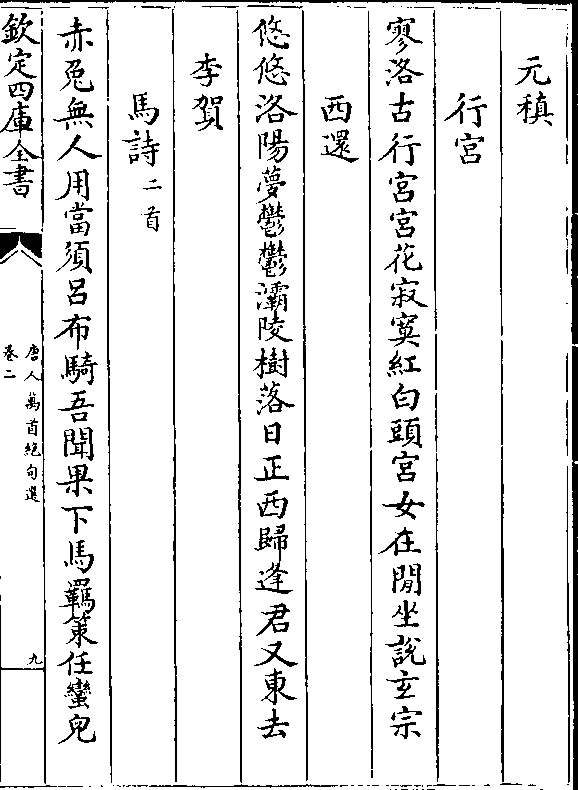 元稹
行宫
寥洛古行宫宫花寂寞紅白頭宫女在閒坐說玄宗
西還
悠悠洛陽夢鬱鬱灞陵樹落日正西歸逢君又東去
李賀
馬詩二首
赤兔無人用當須呂布騎吾聞果下馬羈策任蠻兒
欽定四庫全書
唐人萬首絶句選
卷二
九